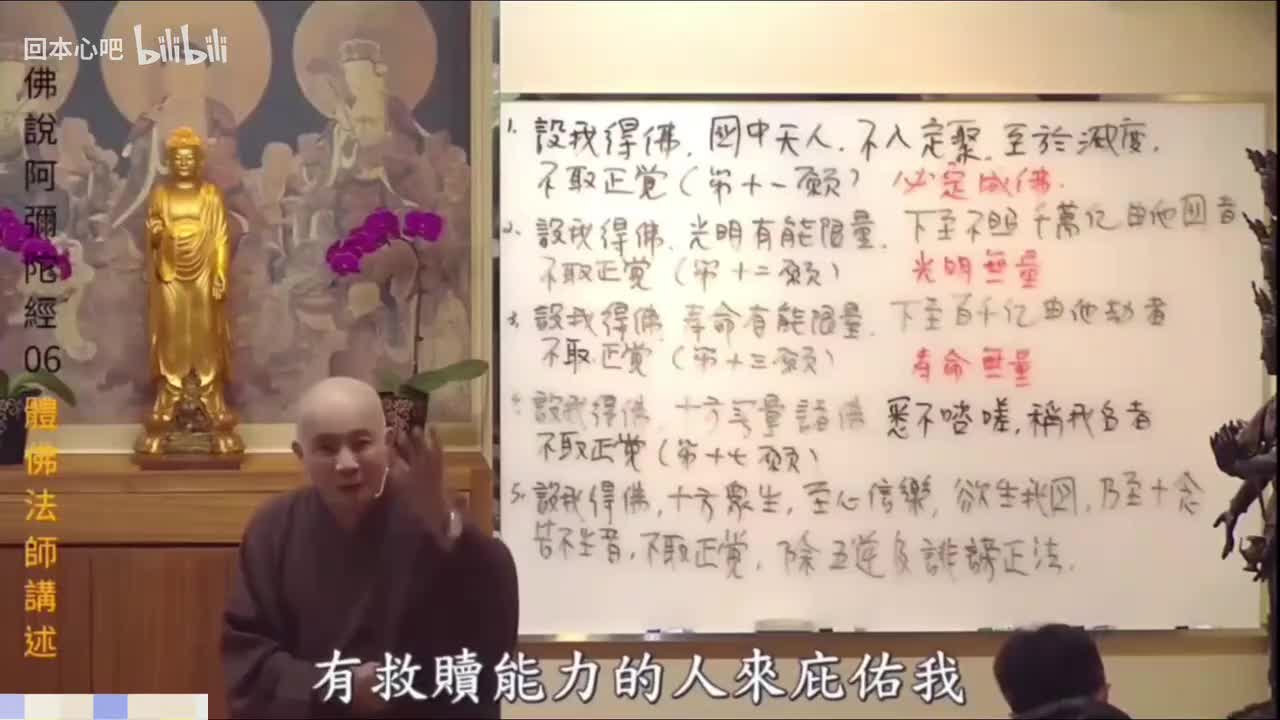 回本心吧 bilibili
佛說阿彌陀經 06 體佛法師講述
1. 設我得佛,國中天人,不入定聚,至於滅度,
不取正覚(第十一願) 必定成佛.
2. 設我得佛,光明有能限量,下至不照千萬亿由他国者
不取正覚(第十二願) 光明無量
3. 設我得佛,寿命有能限量,下至百千亿由他劫者
不取正覚(第十三願) 寿命無量
設我得佛,十方無量諸佛 悉不咨嗟,稱我名者
不取正覚(第十七願)
5. 設我得佛,十方衆生,至心信樂,欲生我国,乃至十念
若不生者,不取正覚,除五逆及誹謗正法.
有救贖能力的人來庇佑我